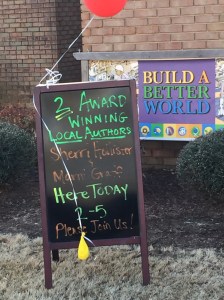 2 AWARD
WINNING
LOCAL AUTHORS
Sherri
&
Mary
HERE TODAY
2-5
PLEASE JOIN US!
BUILD A
BETTER
WORLD